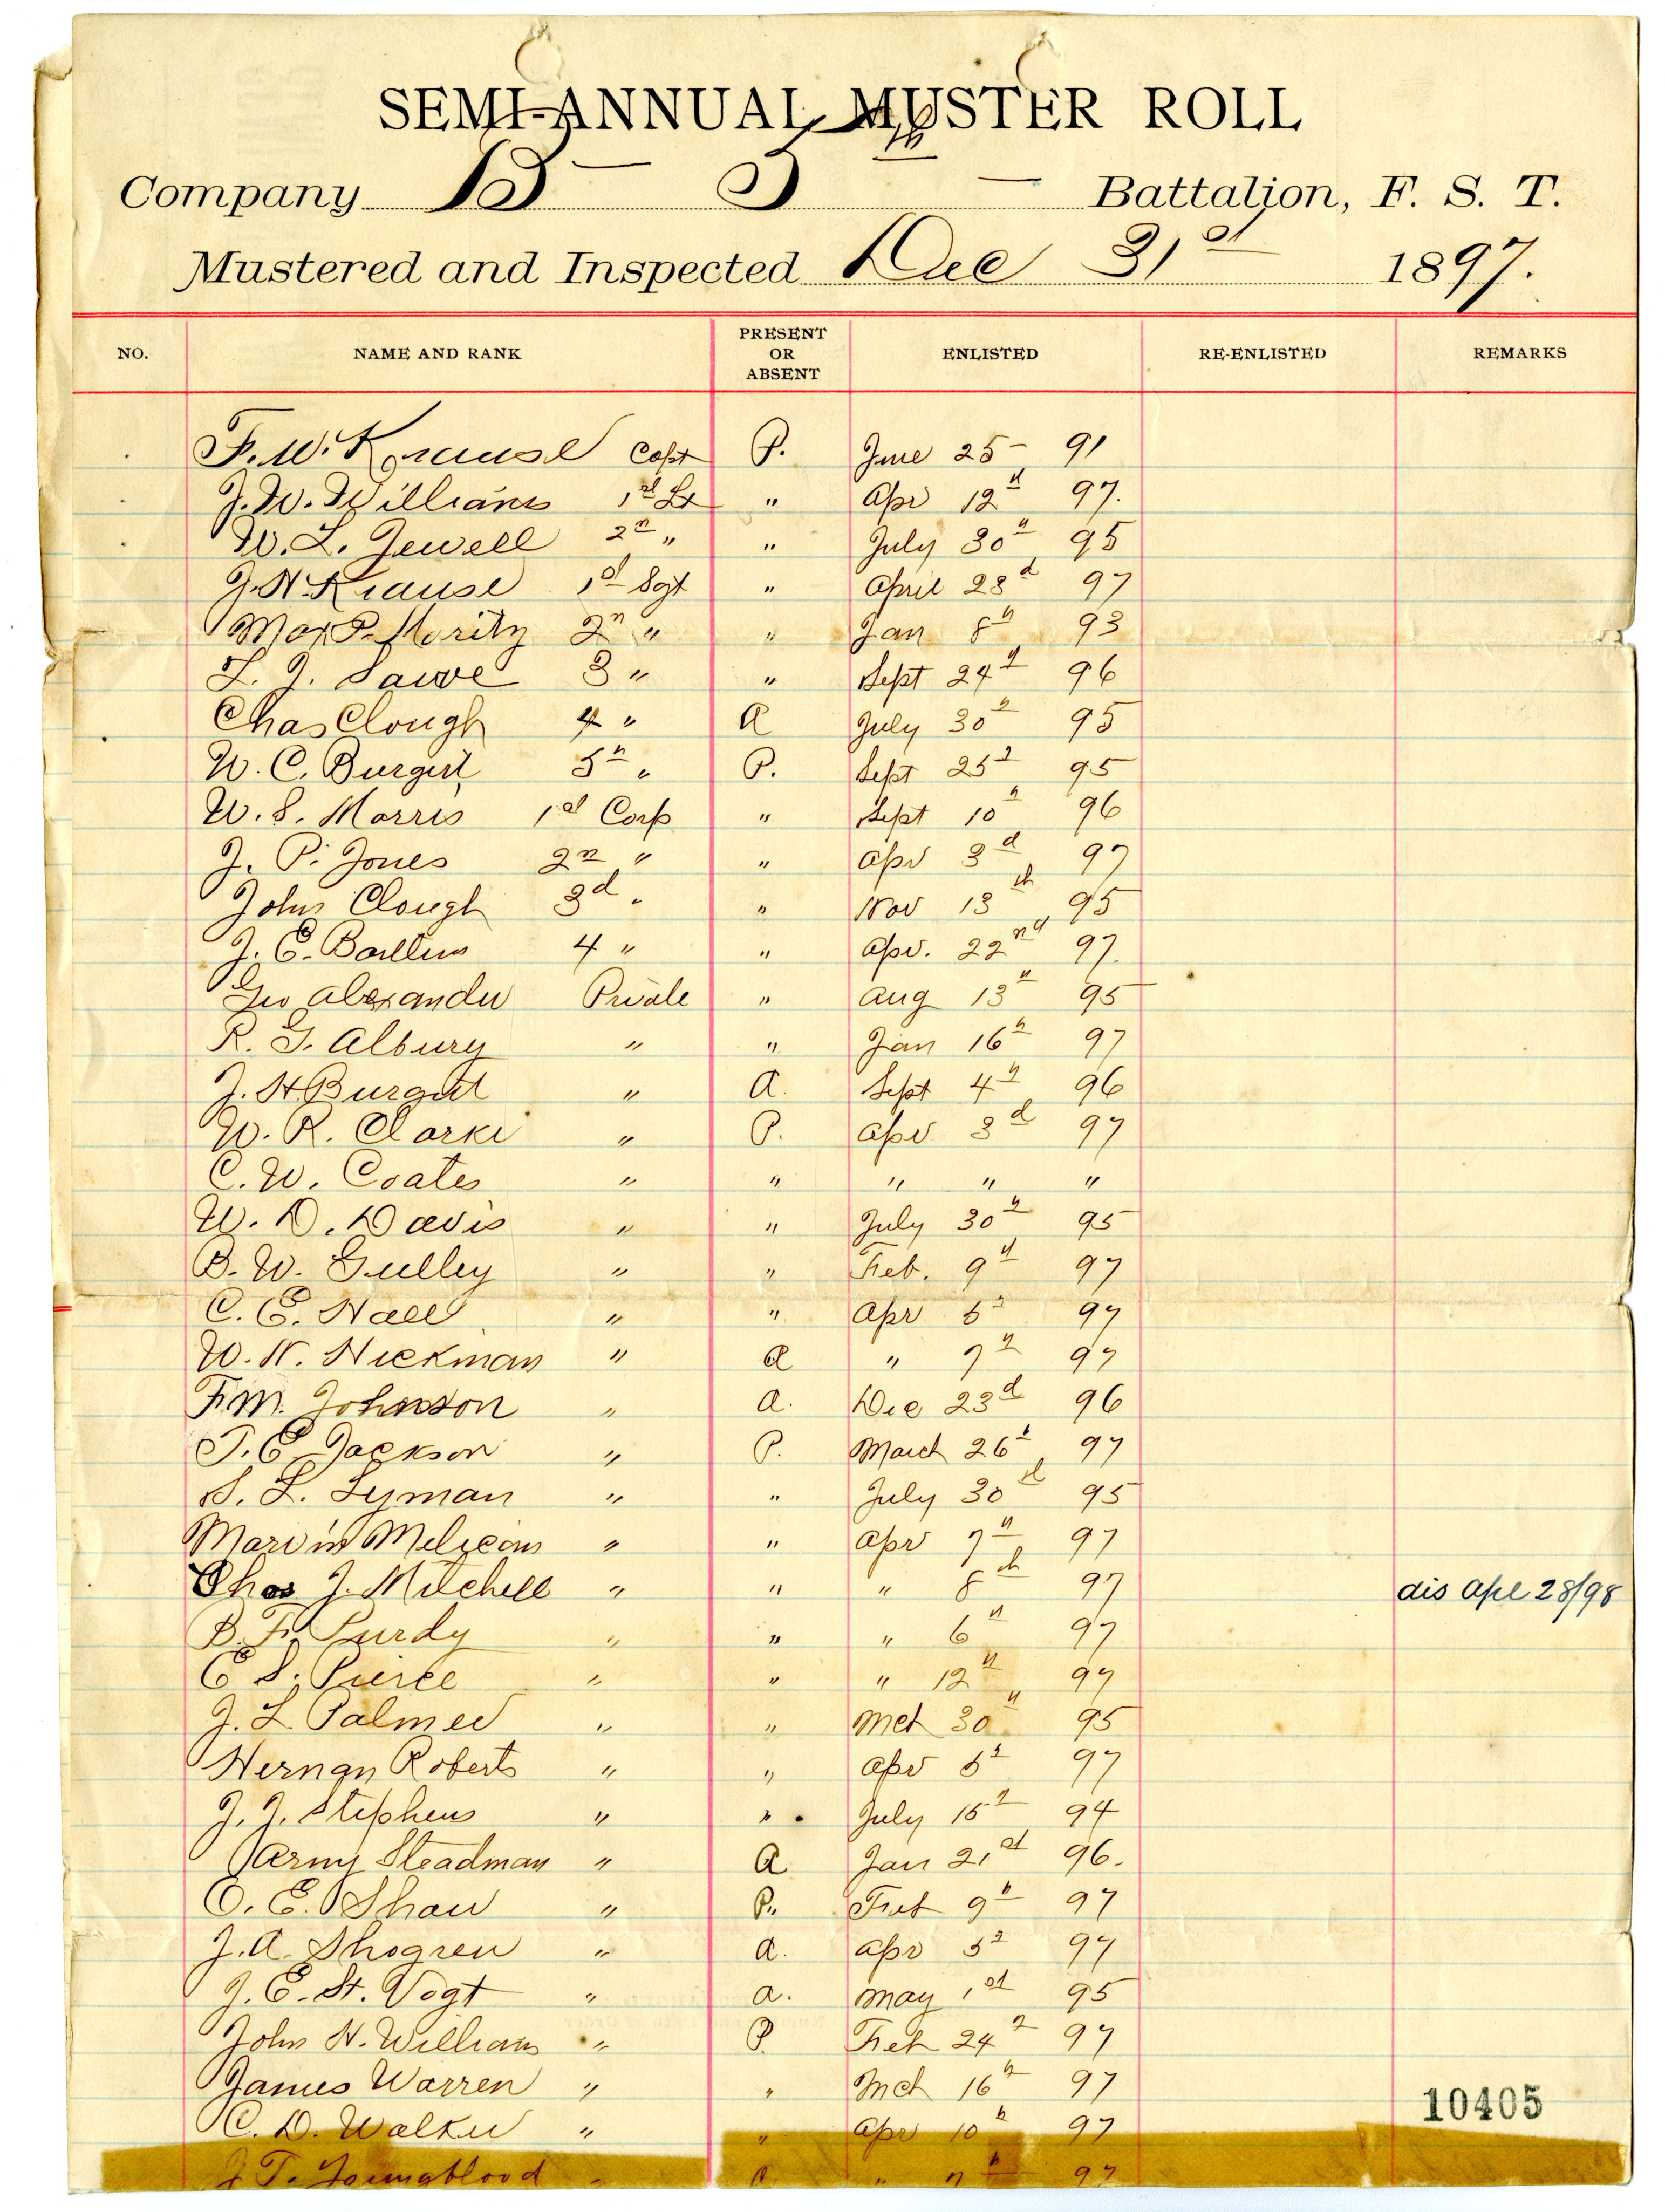 SEMI-ANNUAL MUSTER ROLL
Company B - 5th - Battalion, F. S. T.
Mustered and Inspected Dec 31st 1897.
NO. NAME AND RANK PRESENT OR ABSENT ENLISTED RE-ENLISTED REMARKS
F. W. Krause Capt P. June 25 - 91
J. W. Williams 1st Lt " Apr 12th 97.
W. L. Jewell 2n " " July 30th 95
J. H. Krause 1st Sgt " April 23d 97
Max P. Moritz 2n " " Jan 8th 93
L. J. Sawe 3 " " Sept 24th 96
Chas Clough 4 " A July 30th 95
W. C. Burgert 5th " P. Sept 25th 95
W. S. Morris 1st Corp " Sept 10th 96
J. P. Jones 2n " " Apr 3d 97
John Clough 3d " " Nov 13th 95
J. E. 4 " " Apr. 22nd 97.
Geo Alexander Private " Aug 13th 95
R. G. Albury " " Jan 16th 97
J. H. Burgert " A. Sept 4th 96
W. R. Clarke " P. Apr 3d 97
C. W. Coates " " " " "
W. D. Davis " " July 30th 95
B. W. Gulley " " Feb. 9th 97
C. E. Hall " " Apr 5th 97
W. H. Hickman " A " 7th 97
F. M. Johnson " A. Dec 23d 96
T. E. Jackson " P. March 26th 97
S. L. Lyman " " July 30th 95
Marvin " " Apr 7th 97
Chas J. Mitchell " " " 8th 97 dis Apl 28/98
B. F. Purdy " " " 6th 97
E. S. Pierce " " " 12th 97
J. L. Palmer " " Mch 30th 95
Herman Roberts " " Apr 5th 97
J. J. Stephens " " July 15th 94
Army Steadman " A Jan 21st 96.
O. E. Shaw " P. Feb 9th 97
J. A. Shogren " A. Apr 5th 97
J. E. St. Vogt " A. May 1st 95
John H. Williams " P. Feb 24th 97
James Warren " " Mch 16th 97
C. D. Walker " " Apr 10th 97
J. T. Youngblood " A. " 7th 97
10405